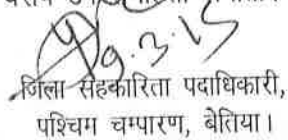 9.3.15
जिला सहकारिता पदाधिकारी,
पश्चिम चम्पारण, बेतिया।